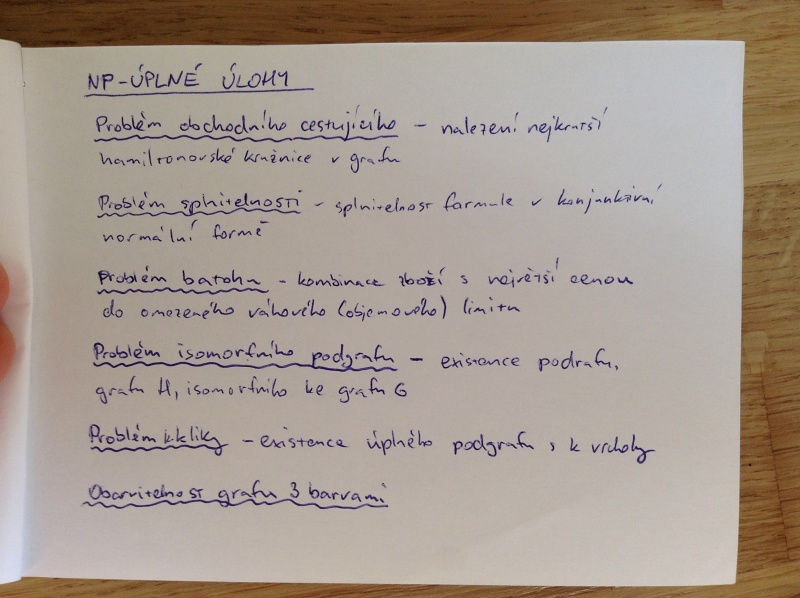 NP-ÚPLNÉ ÚLOHY
Problém obchodního cestujícího – nalezení nejkratší
hamiltonovské kružnice v grafu
Problém splnitelnosti – splnitelnost formule v konjunktivní
normální formě
Problém batohu – kombinace zboží s největší cenou
do omezeného váhového (objemového) limitu
Problém isomorfního podgrafu – existence podrafu,
grafu H, isomorfního ke grafu G
Problém k-kliky – existence úplného podgrafu s k vrcholy
Obarvitelnost grafu 3 barvami